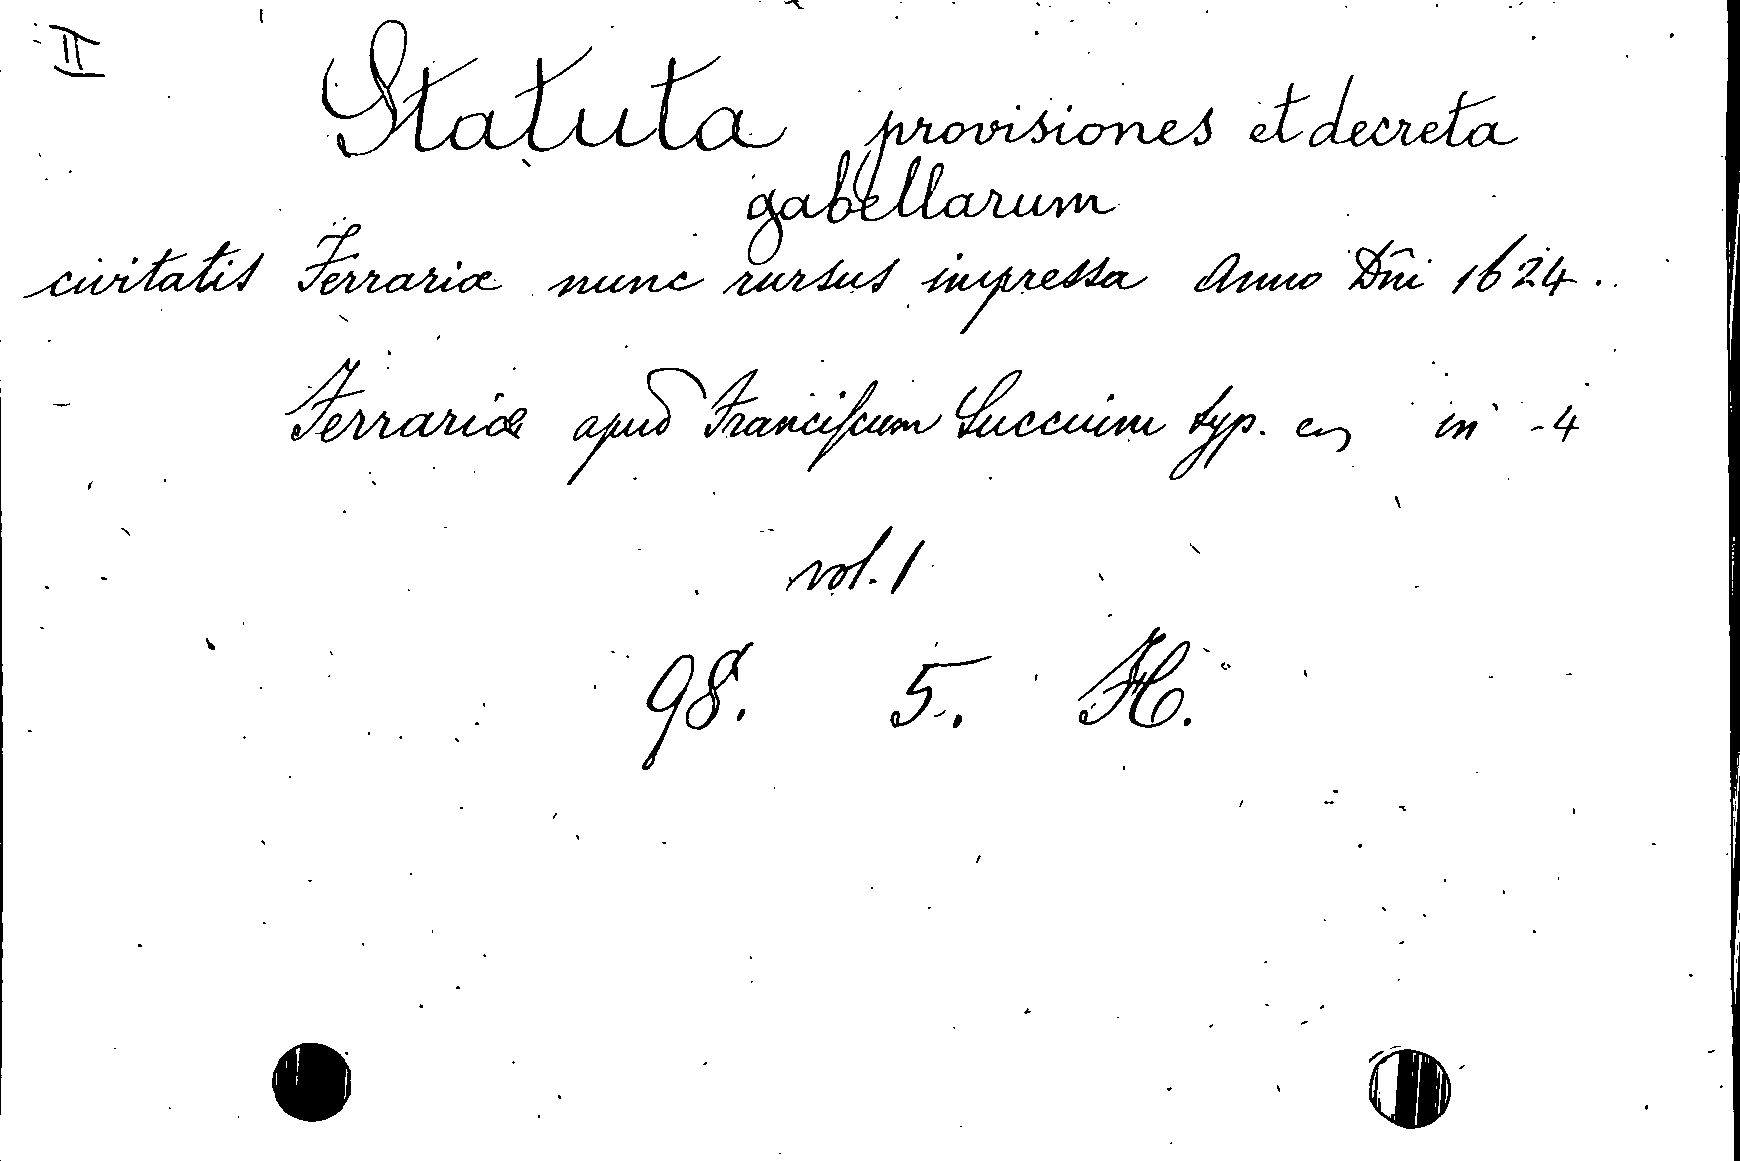 II
Statuta provisiones et decreta
gabellarum
civitatis Ferrariæ nunc rursus impressa Anno Dñi 1624.
Ferrariæ apud Franciscum Succium typ. in -4
vol. 1
98. 5. H.